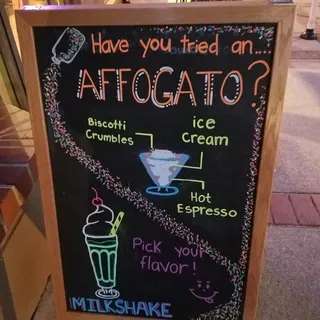 Have you tried an....
AFFOGATO?
Biscotti
Crumbles
ice
cream
Hot
Espresso
Pick your
flavor!
MILKSHAKE